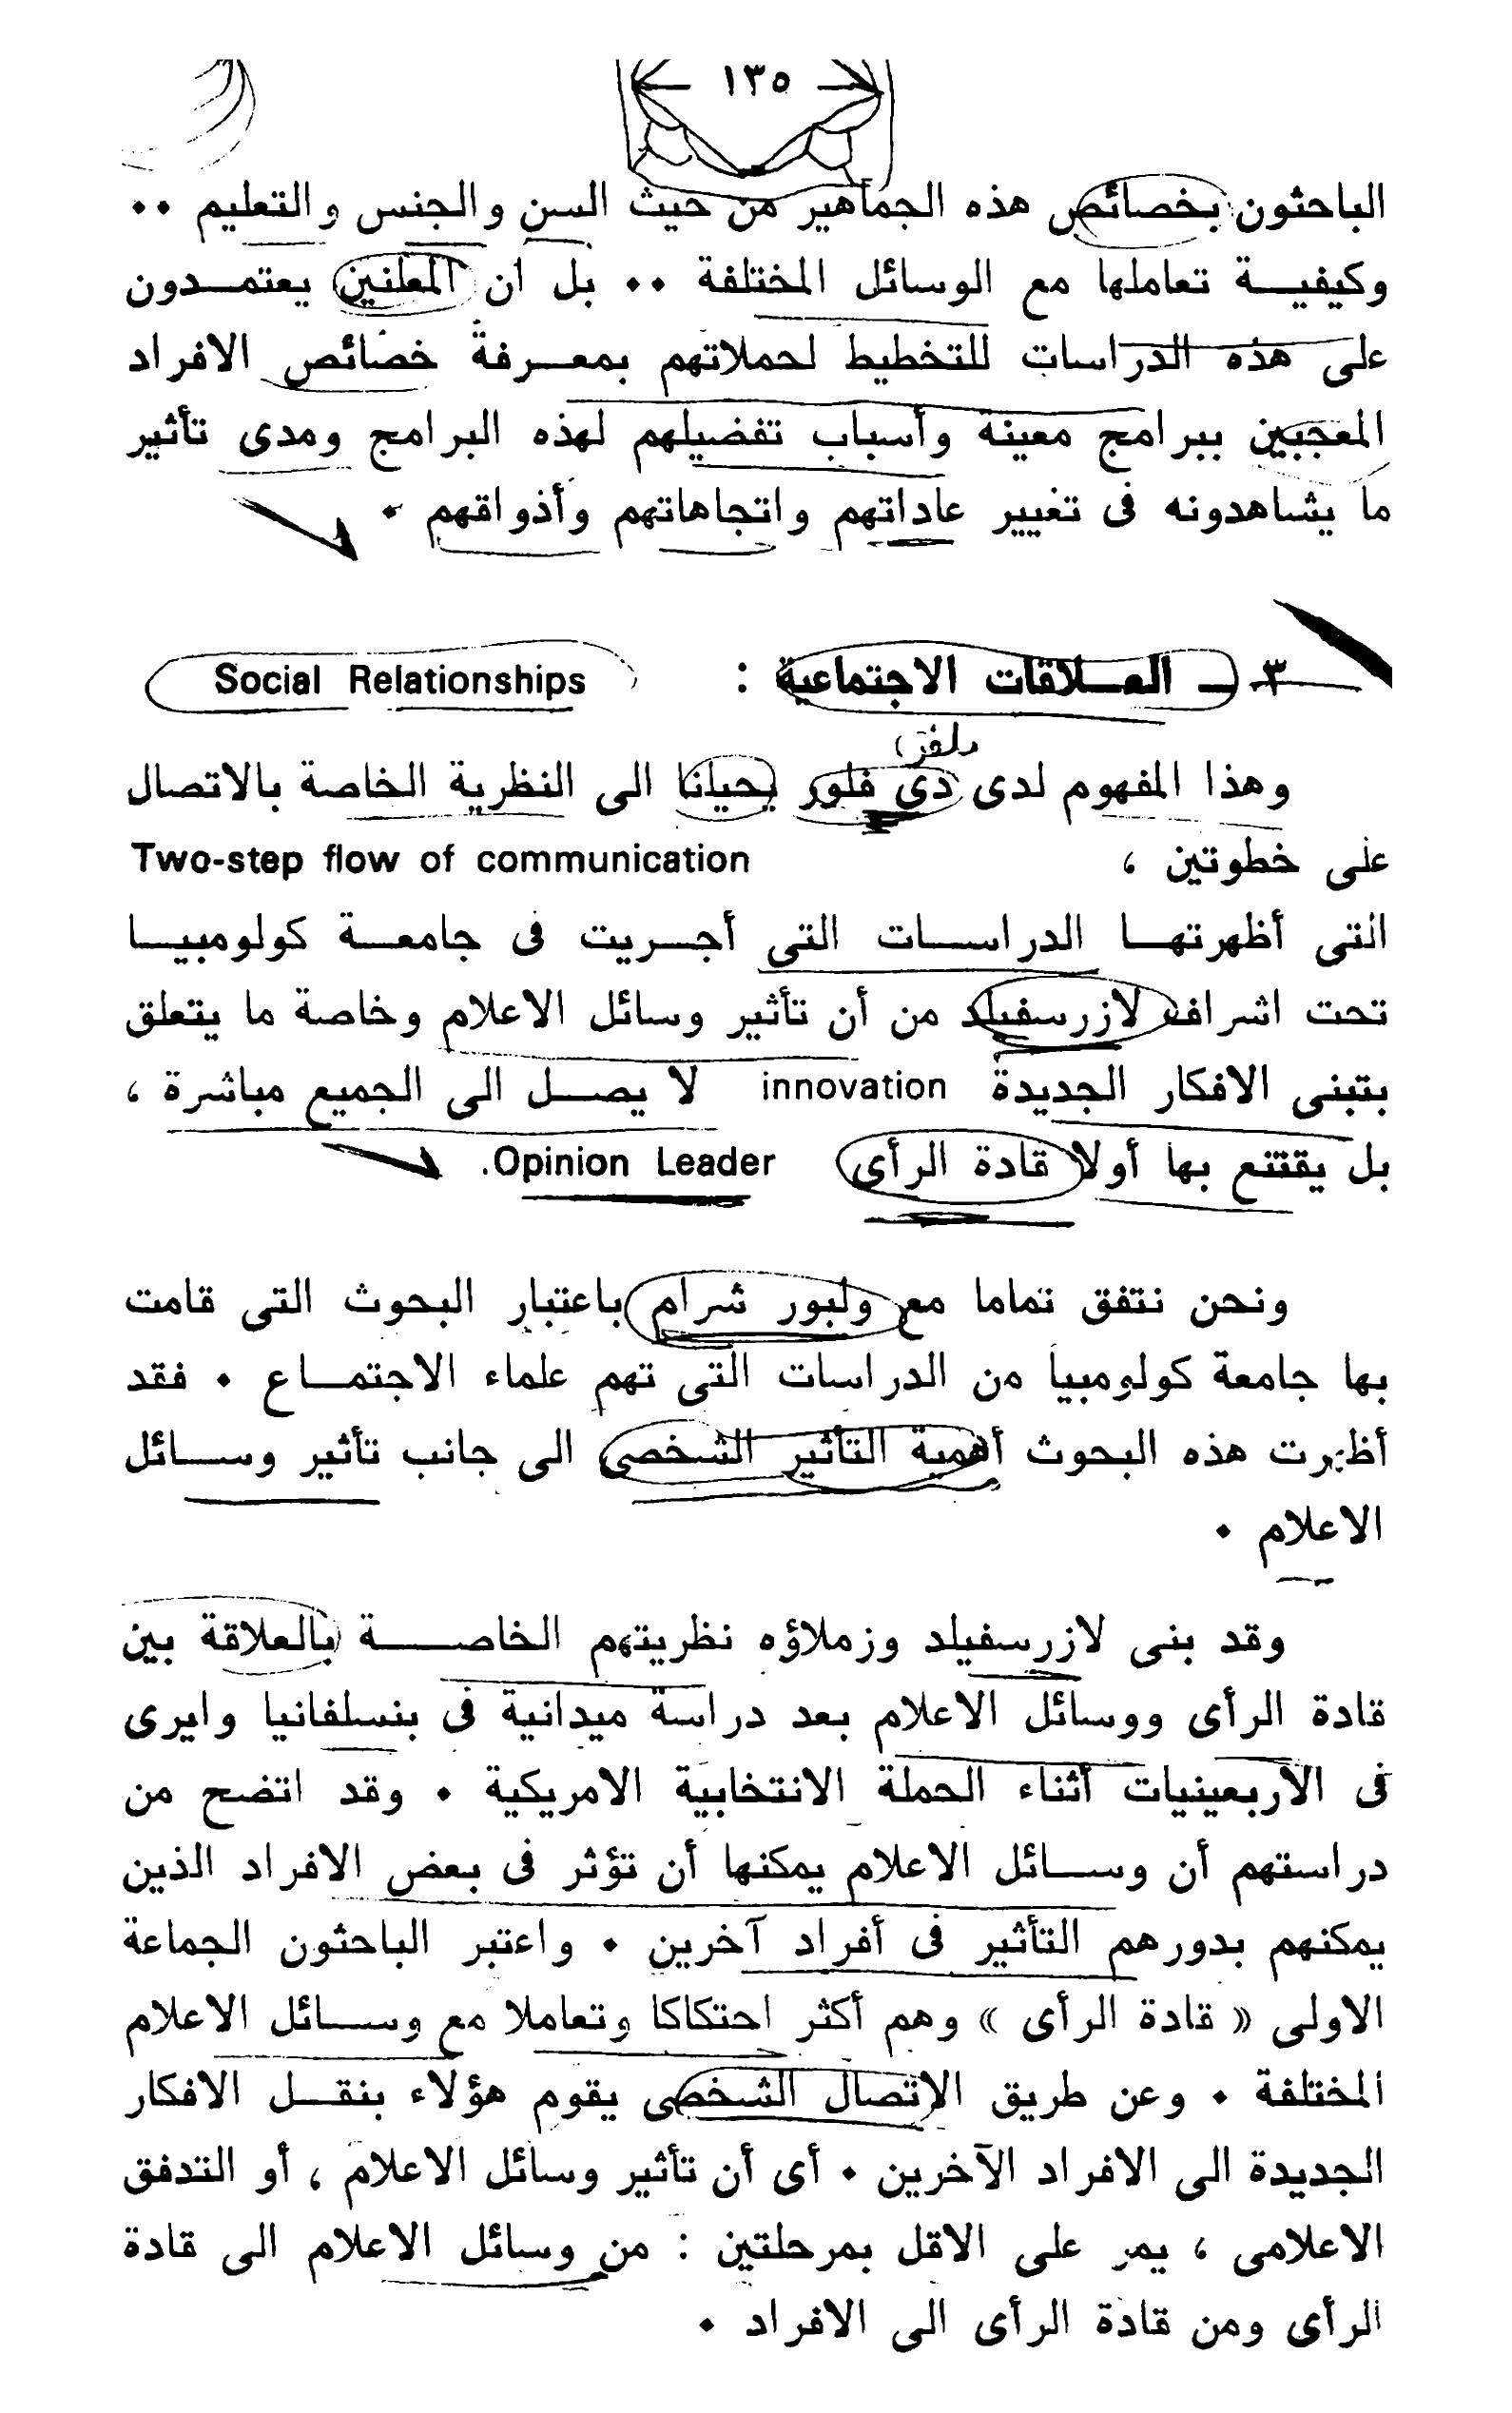 ١٣٥
الباحثون بخصائص هذه الجماهير من حيث السن والجنس والتعليم ٠٠
وكيفيـــة تعاملها مع الوسائل المختلفة ٠٠ بل ان المعلنين يعتمــدون
على هذه الدراسات للتخطيط لحملاتهم بمعــرفة خصائص الافراد
المعجبين ببرامج معينة وأسباب تفضيلهم لهذه البرامج ومدى تأثير
ما يشاهدونه فى تغيير عاداتهم واتجاهاتهم وأذواقهم ٠
٣ ــ العــلاقات الاجتماعية : Social Relationships
وهذا المفهوم لدى دى فلور يحيلنا الى النظرية الخاصة بالاتصال
على خطوتين ، Two-step flow of communication
التى أظهرتهــا الدراســات التى أجــريت فى جامعــة كولومبيــا
تحت اشراف لازرسفيلد من أن تأثير وسائل الاعلام وخاصة ما يتعلق
بتبنى الافكار الجديدة innovation لا يصــل الى الجميع مباشرة ،
بل يقتنع بها أولا قادة الرأى Opinion Leader.
ونحن نتفق تماما مع ولبور شرام باعتبار البحوث التى قامت
بها جامعة كولومبيا من الدراسات التى تهم علماء الاجتمــاع ٠ فقد
أظهرت هذه البحوث أهمية التأثير الشخصى الى جانب تأثير وســائل
الاعلام ٠
وقد بنى لازرسفيلد وزملاؤه نظريتهم الخاصــــة بالعلاقة بين
قادة الرأى ووسائل الاعلام بعد دراسة ميدانية فى بنسلفانيا وايرى
فى الأربعينيات أثناء الحملة الانتخابية الامريكية ٠ وقد اتضح من
دراستهم أن وســائل الاعلام يمكنها أن تؤثر فى بعض الافراد الذين
يمكنهم بدورهم التأثير فى أفراد آخرين ٠ واعتبر الباحثون الجماعة
الاولى « قادة الرأى » وهم أكثر احتكاكا وتعاملا مع وســائل الاعلام
المختلفة ٠ وعن طريق الاتصال الشخصى يقوم هؤلاء بنقــل الافكار
الجديدة الى الافراد الآخرين ٠ أى أن تأثير وسائل الاعلام ، أو التدفق
الاعلامى ، يمر على الاقل بمرحلتين : من وسائل الاعلام الى قادة
الرأى ومن قادة الرأى الى الافراد ٠